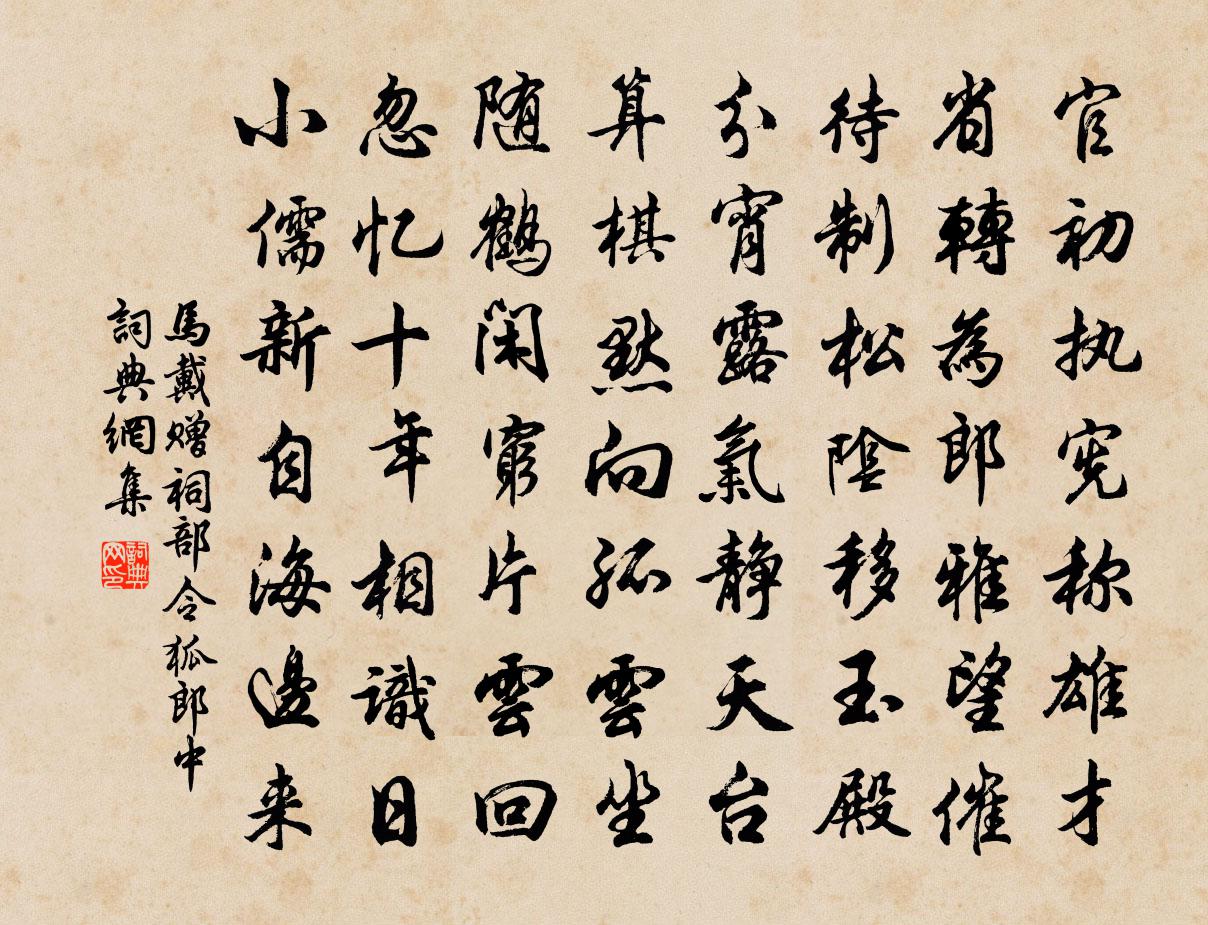 官初执宪称雄才
省轉為郎雅望催
待制松陰移玉殿
分宵露氣静天台
算棋默向孤雲坐
随鹤闲窮片雲回
忽忆十年相識日
小儒新自海邊来
馬戴赠祠部令狐郎中
詞典網集
詞典网印